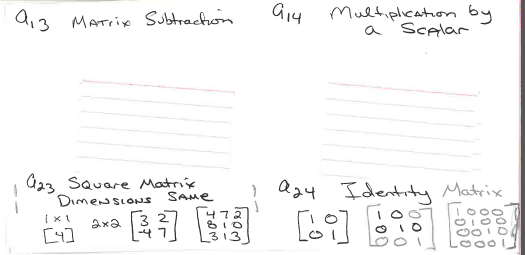 a13 Matrix Subtraction
a14 Multiplication by
a Scalar
a23 Square Matrix
Dimensions Same
1x1
[4]
2x2 [3 2
-4 7]
[4 7 2
8 1 0
3 1 3]
a24 Identity Matrix
[1 0
0 1]
[1 0 0
0 1 0
0 0 1]
[1 0 0 0
0 1 0 0
0 0 1 0
0 0 0 1]